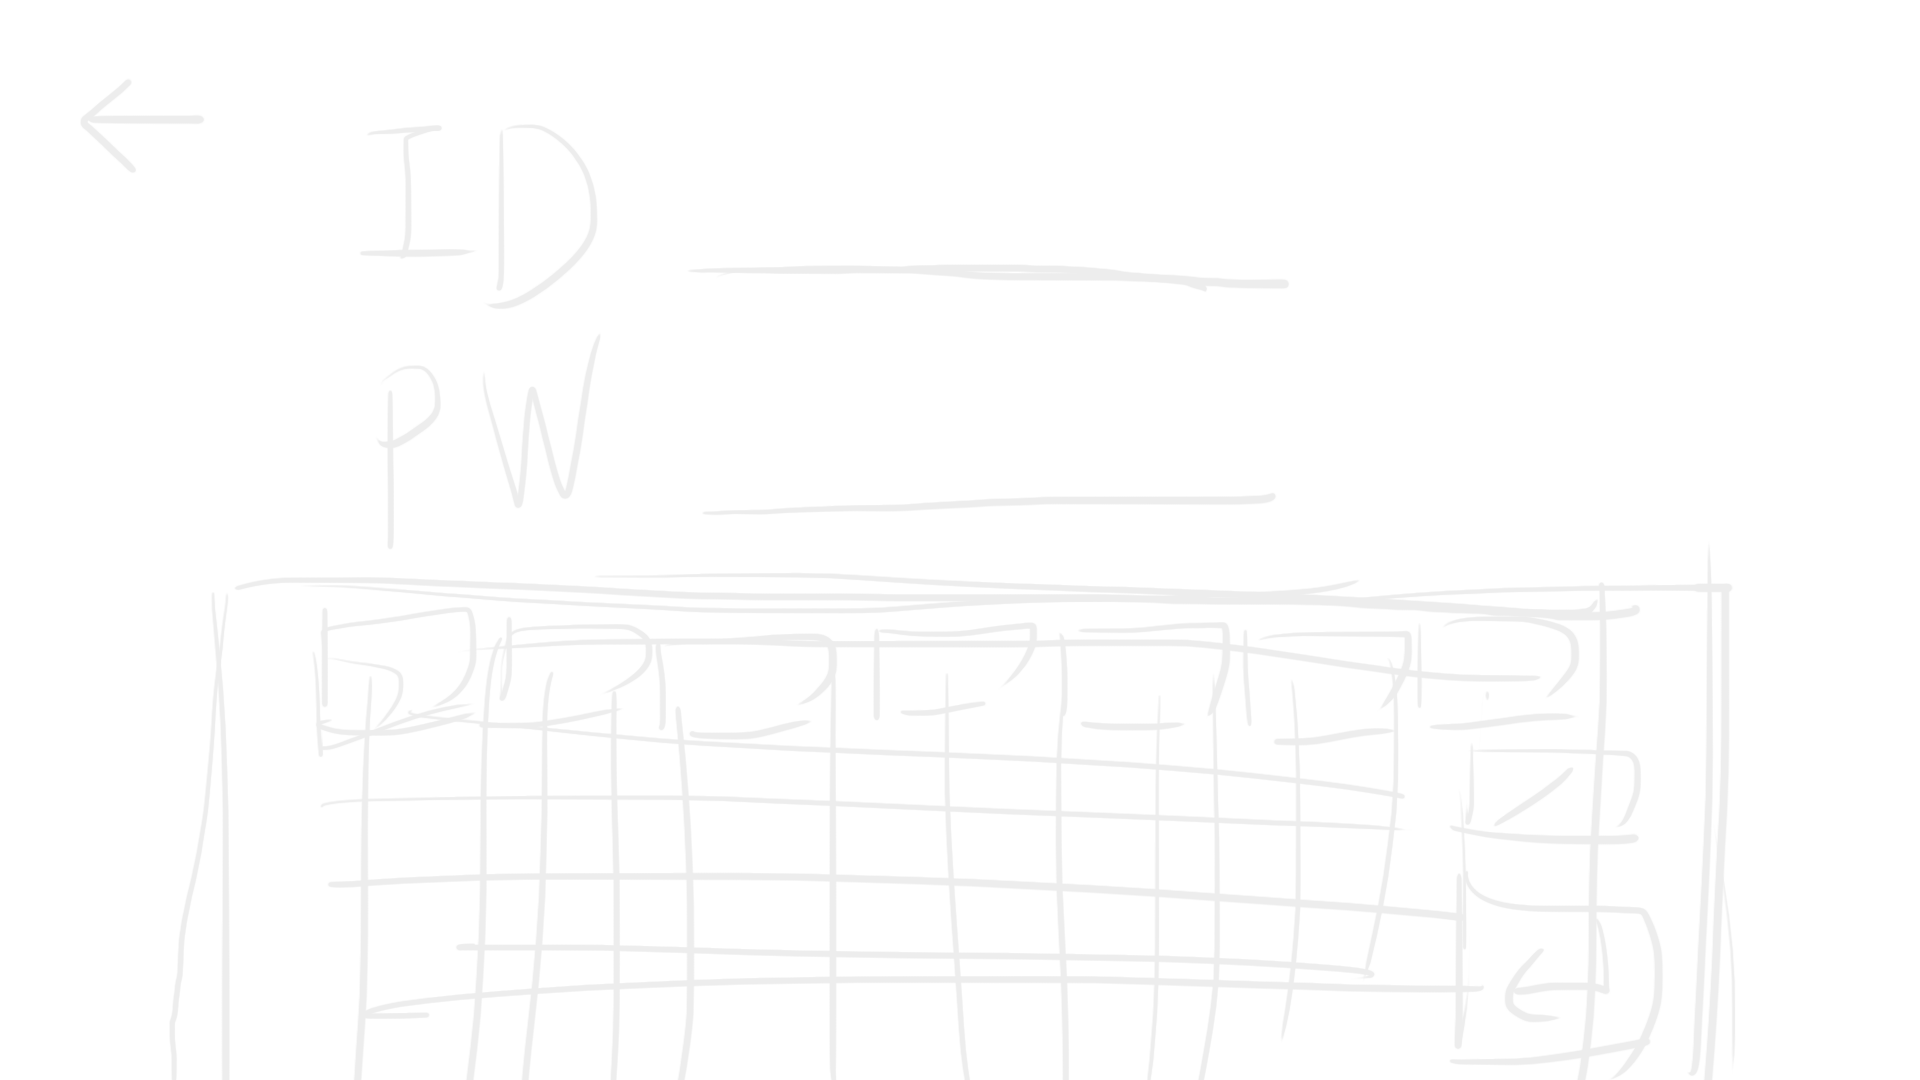 ID
PW